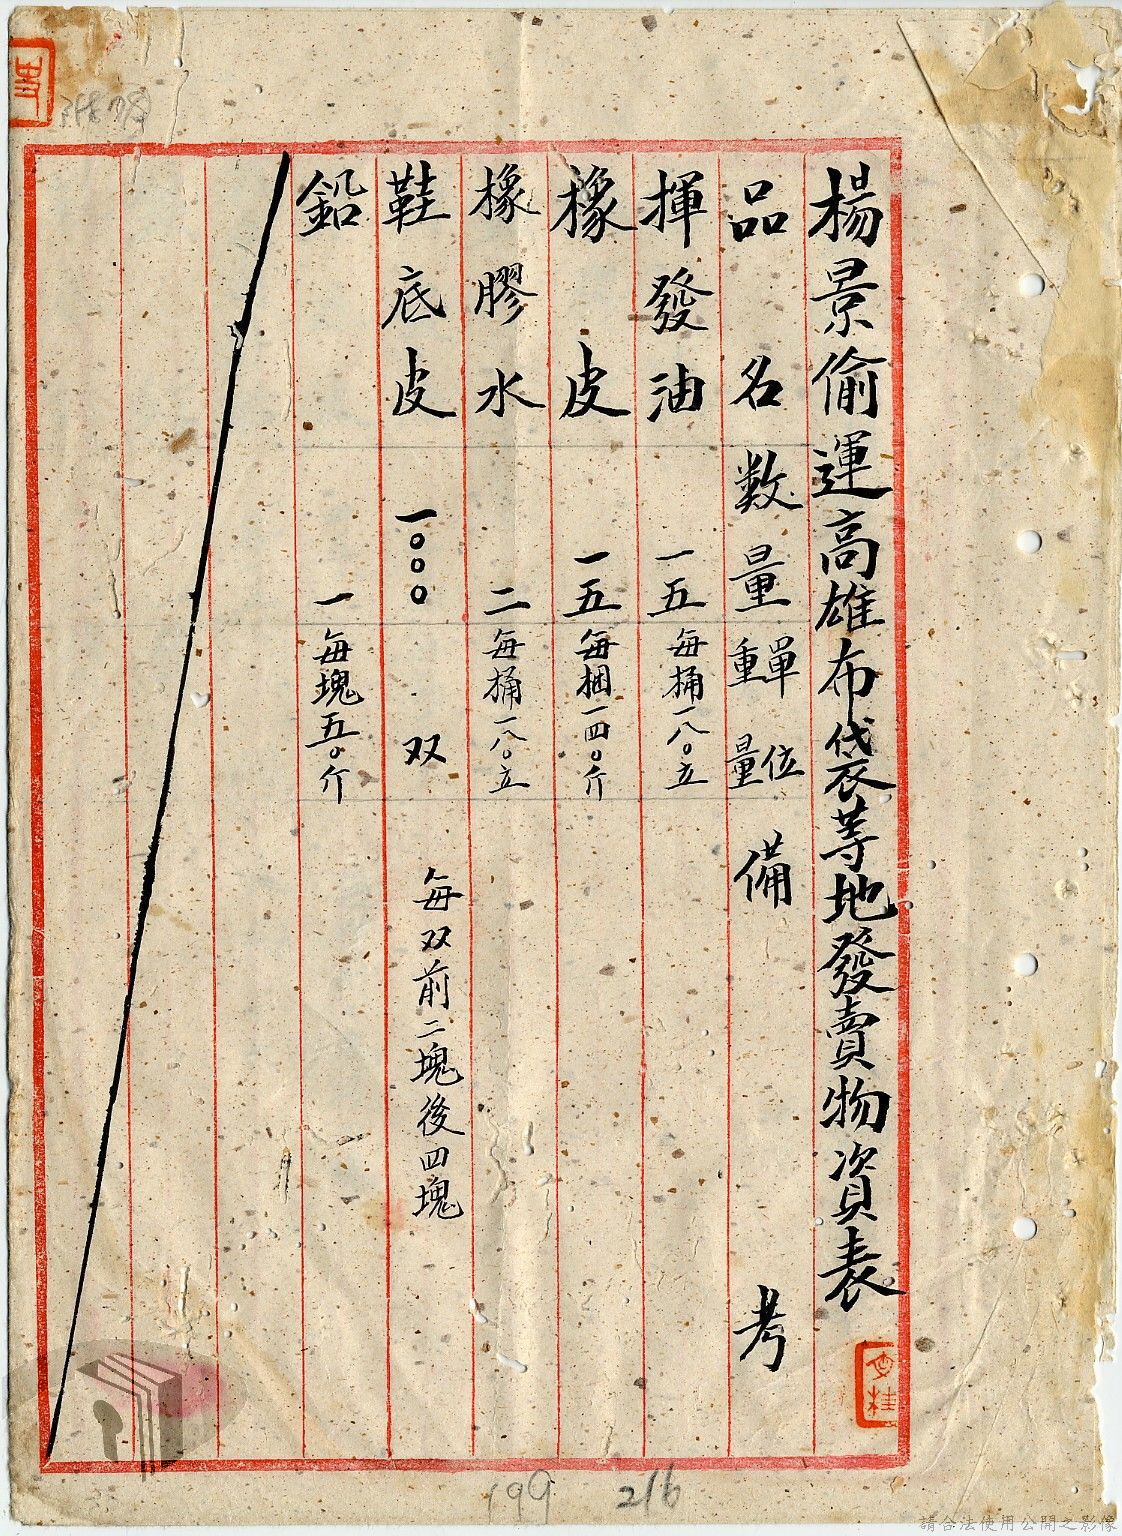 楊景偷運高雄布袋等地發賣物資表
品名 數量 單位重量 備考
揮發油 一五 每桶一八〇立
橡皮 一五 每捆一四〇斤
橡膠水 二 每桶一八〇立
鞋底皮 一〇〇〇 双 每双前二塊後四塊
鉛 一 每塊五〇斤
199 216
請合法使用公開之影像